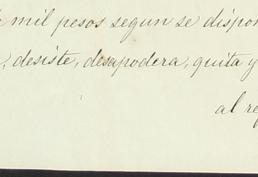 mil pesos segun se dispon
, desiste, desapodera, quita y
al re